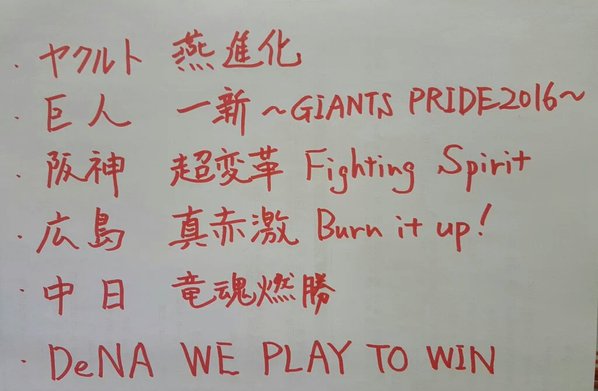 ・ヤクルト 燕進化
・巨人 一新～GIANTS PRIDE2016～
・阪神 超変革 Fighting Spirit
・広島 真赤激 Burn it up!
・中日 竜魂燃勝
・DeNA WE PLAY TO WIN